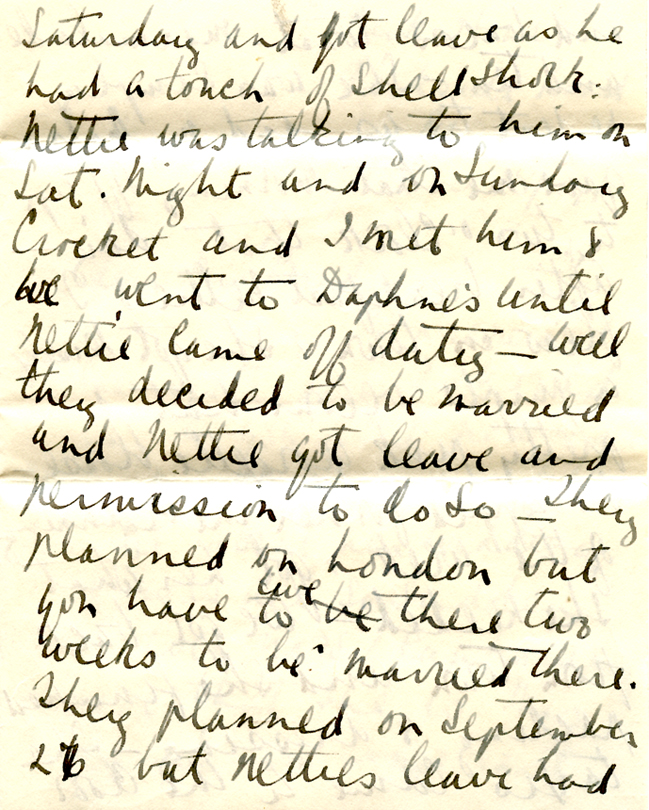 Saturday and got leave as he
had a touch of Shell Shock.
Nettie was talking to him on
Sat. Night and on Sunday
Crocket and I met him &
we went to Daphne's until
Nettie came off duty — well
they decided to be married
and Nettie got leave and
permission to do so — They
planned on London but
you have to live be there two
weeks to be married there.
They planned on September
26 but Netties leave had